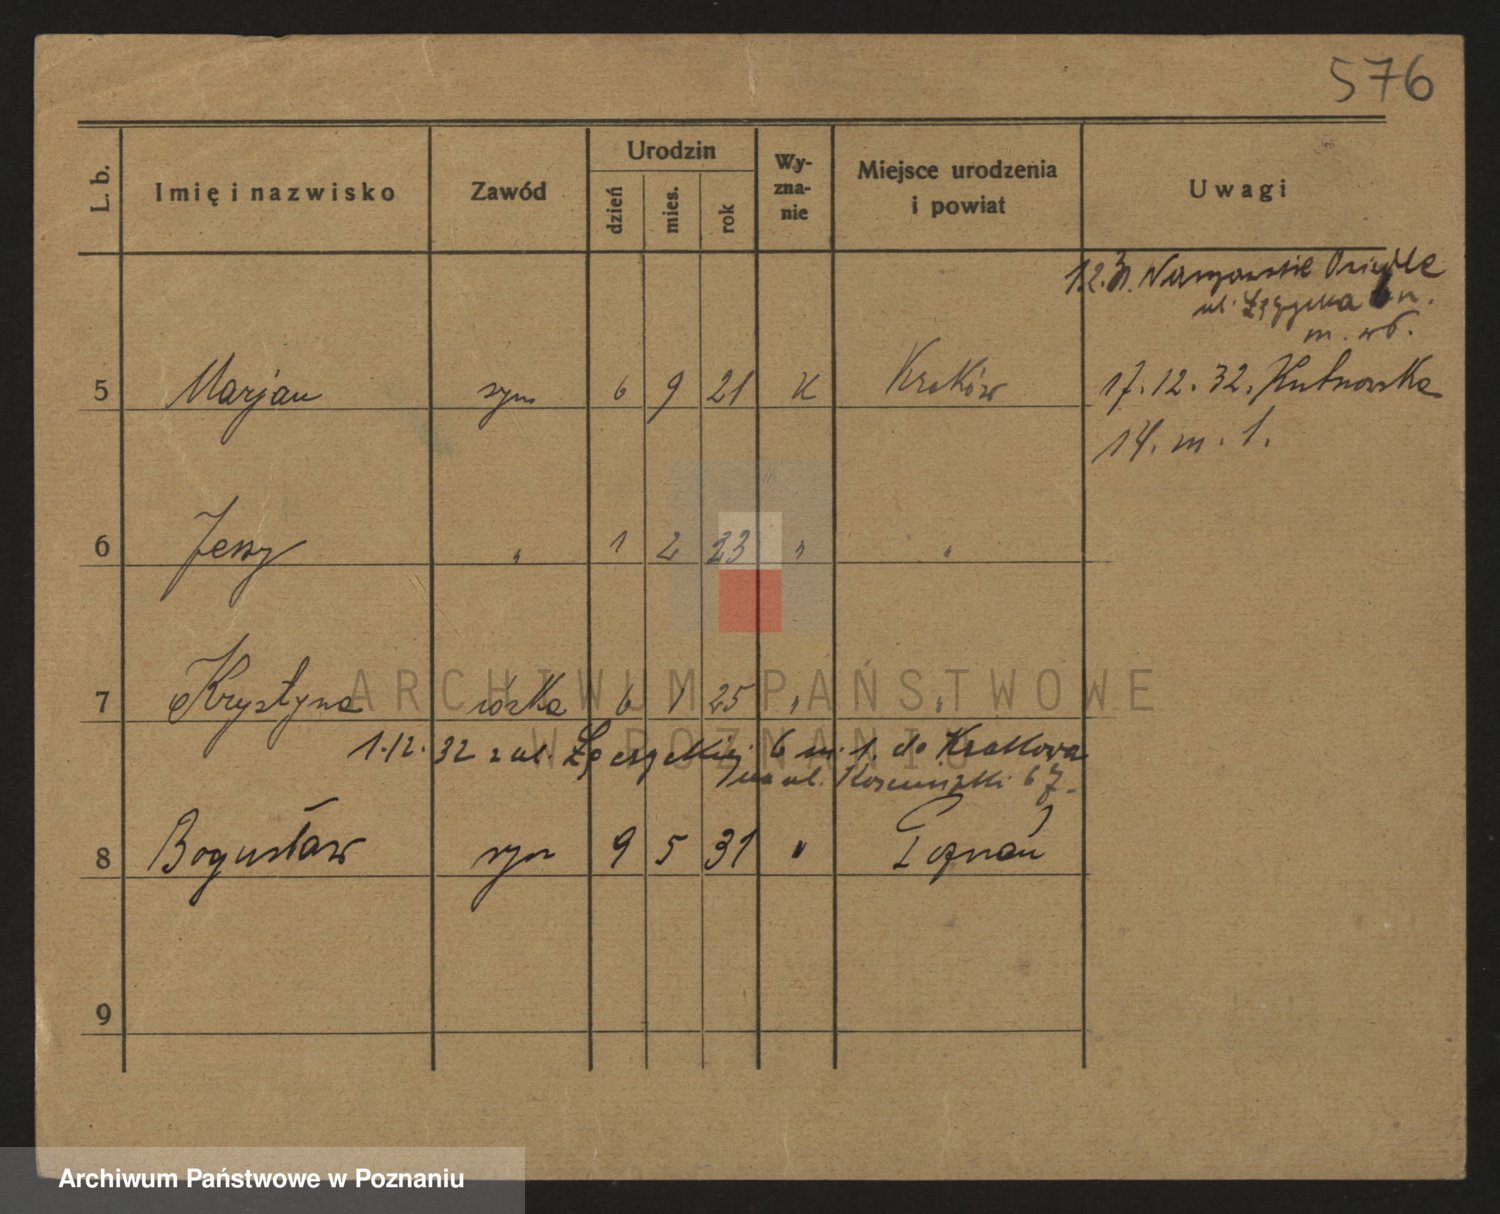 576
L. b. Imię i nazwisko Zawód Urodzin dzień mies. rok Wy-zna-nie Miejsce urodzenia i powiat Uwagi
1.2.31. Warszawskie Osiedle
ul. Łęczycka 6
m.
5 Marjan syn 6 9 21 K Kraków 17.12.32. Kutnowska
14. m. 1.
6 Jerzy " 1 2 23 " "
7 Krystyna córka 6 1 25 " "
1.12.32 z ul. Łęczyckiej 6 m. 1. do Krakowa
na ul. 67.
8 Bogusław syn 9 5 31 " Poznań
9
ARCHIWUM PAŃSTWOWE
W POZNANIU
Archiwum Państwowe w Poznaniu